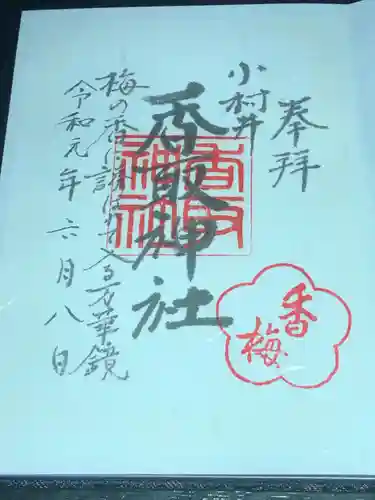 奉拝
小村井
香取神社
梅の香に誘はれ入る万華鏡
令和元年六月八日
香梅